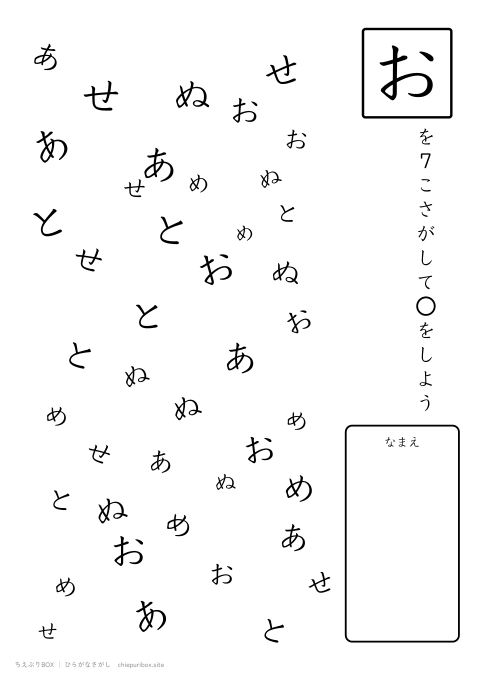 お
を7こさがして○をしよう
なまえ
あ
せ
せ
ぬ
お
お
あ
あ
せ
め
ぬ
と
と
と
め
せ
お
ぬ
と
お
と
あ
ぬ
め
ぬ
め
せ
あ
お
ぬ
め
と
ぬ
め
あ
お
お
せ
め
あ
せ
と
ちえぷりBOX | ひらがなさがし chiepuribox.site